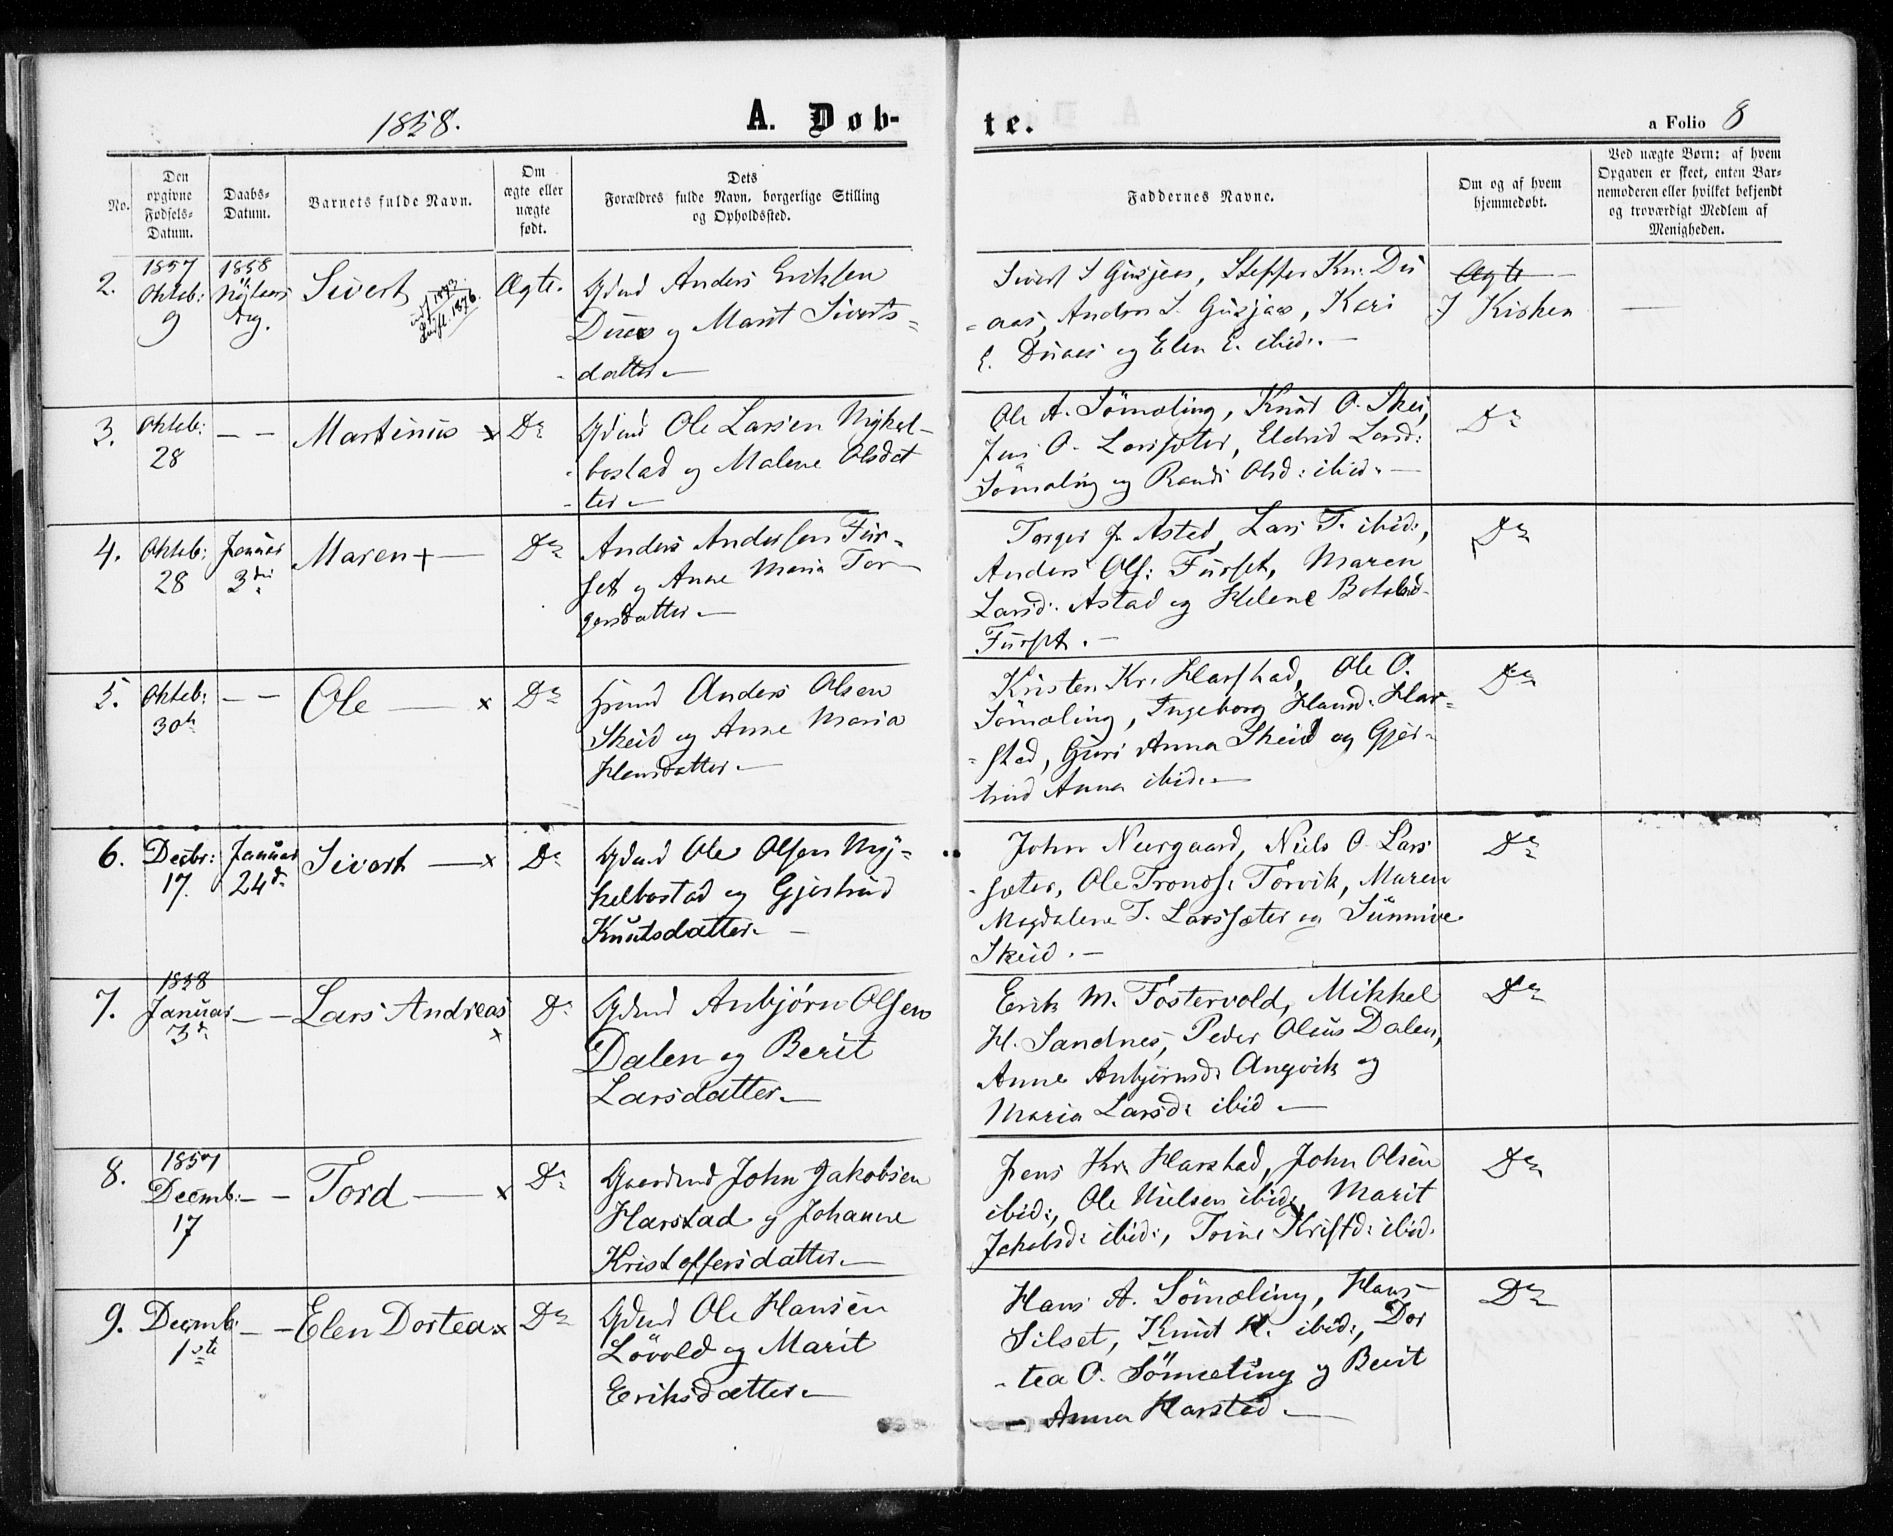 1858.
A. Døb-
te.
a Folio 8
No.
Den
opgivne
Fødsels-
Datum.
Daabs-
Datum.
Barnets fulde Navn.
Om
ægte eller
uægte
født.
Dets
Forældres fulde Navn, borgerlige Stilling
og Opholdssted.
Faddernes Navne.
Om og af hvem
hjemmedøbt.
Ved uægte Børn: af hvem
Opgaven er skeet, enten Bar-
nemoderen eller hvilket bekjendt
og troværdigt Medlem af
Menigheden.
2.
1857
Okteb:
9
1858
Nytaars
Dag.
Sivert
1876.
Ægte.
Gdmd Anders Eriksen
og Marit Siverts-
datter.
Sivert S Gusjaas, Steffen Kn:
aas, Anders S. Gusjaas, Kari
E. og Elen E. ibid:.
Ægte
I Kirken
3.
Okteb:
28
— —
Martinus x
Do
Gdmd Ole Larsen Mykel-
bostad og Malene Olsdat
ter
Ole A. Sömæling, Knut O. Skei,
Jens O. Larssæter, Eldrid Larsd:
Sömæling og Randi Olsd: ibid.
Do
4.
Okteb:
28
Januar
3die
Maren +
Do
Anders Andersen Fur-
set og Anne Maria Tor
gersdatter
Torger J. Astad, Lars T. ibid:,
Anders Ols: Furset, Maren
Larsd: Astad og Helene
Furset.
Do
5.
Okteb:
30te
— —
Ole x
Do
Grmd Anders Olsen
Skeid og Anne Maria
Hansdatter
Kristen Kr. Harstad, Ole O.
Sömæling, Ingeborg Hansd: Har-
stad, Guri Anna Skeid og Gjer-
trud Anna ibid.
Do
6.
Decbr:
17.
Januar
24de
Sivert x
Do
Gdmd Ole Olsen My-
kelbostad og Gjertrud
Knutsdatter
John Neergaard, Niels O. Lars
sæter, Ole Tronds: Torvik, Maren
Magdalene T. Larssæter og Sünnive
Skeid.
Do
7.
1858
Januar
3de
— —
Lars Andreas
x
Do
Gdmd Anbjørn Olsen
Dalen og Berit
Larsdatter
Erik M. Fostervold, Mikkel
H. Sandnes, Peder Oleus Dalen,
Anne Anbjørnsd: Angvik og
Maria Larsd: ibid
Do
8.
1857
Decmb:
17
— —
Tord x
Do
Gaardmd John Jakobsen
Harstad og Johanne
Kristoffersdatter
Jens Kr. Harstad, John Olsen
ibid:, Ole Nielsen ibid:, Marit
Jakobsd: ibid:, Trine Kristd: ibid.
Do
9.
Decmb:
1ste
— —
Elen Dortea x
Do
Gdmd Ole Hansen
Lövold og Marit
Eriksdatter
Hans A. Sömæling, Hans
Silset, Knut H. ibid:, Dor
tea O. Sömæling og Berit
Anna Harstad
Do